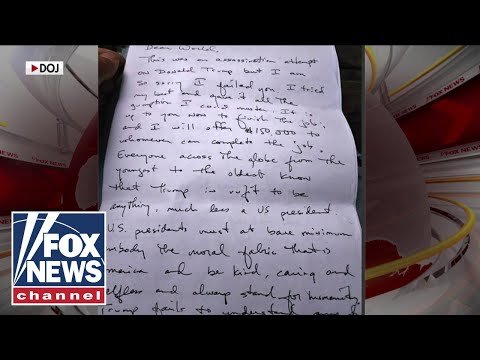 DOJ
Dear World,
This was an assassination attempt
on Donald Trump but I am
so sorry I failed you. I tried
my best and gave it all the
gumption I could muster. It is
up to you now to finish the job;
and I will offer $150,000 to
whomever can complete the job.
Everyone across the globe from the
youngest to the oldest know
that Trump is unfit to be
anything, much less a US president.
U.S. presidents must at bare minimum
embody the moral fabric that is
America and be kind, caring and
selfless and always stand for humanity.
Trump fails to understand
FOX
NEWS
channel
FOX NEWS